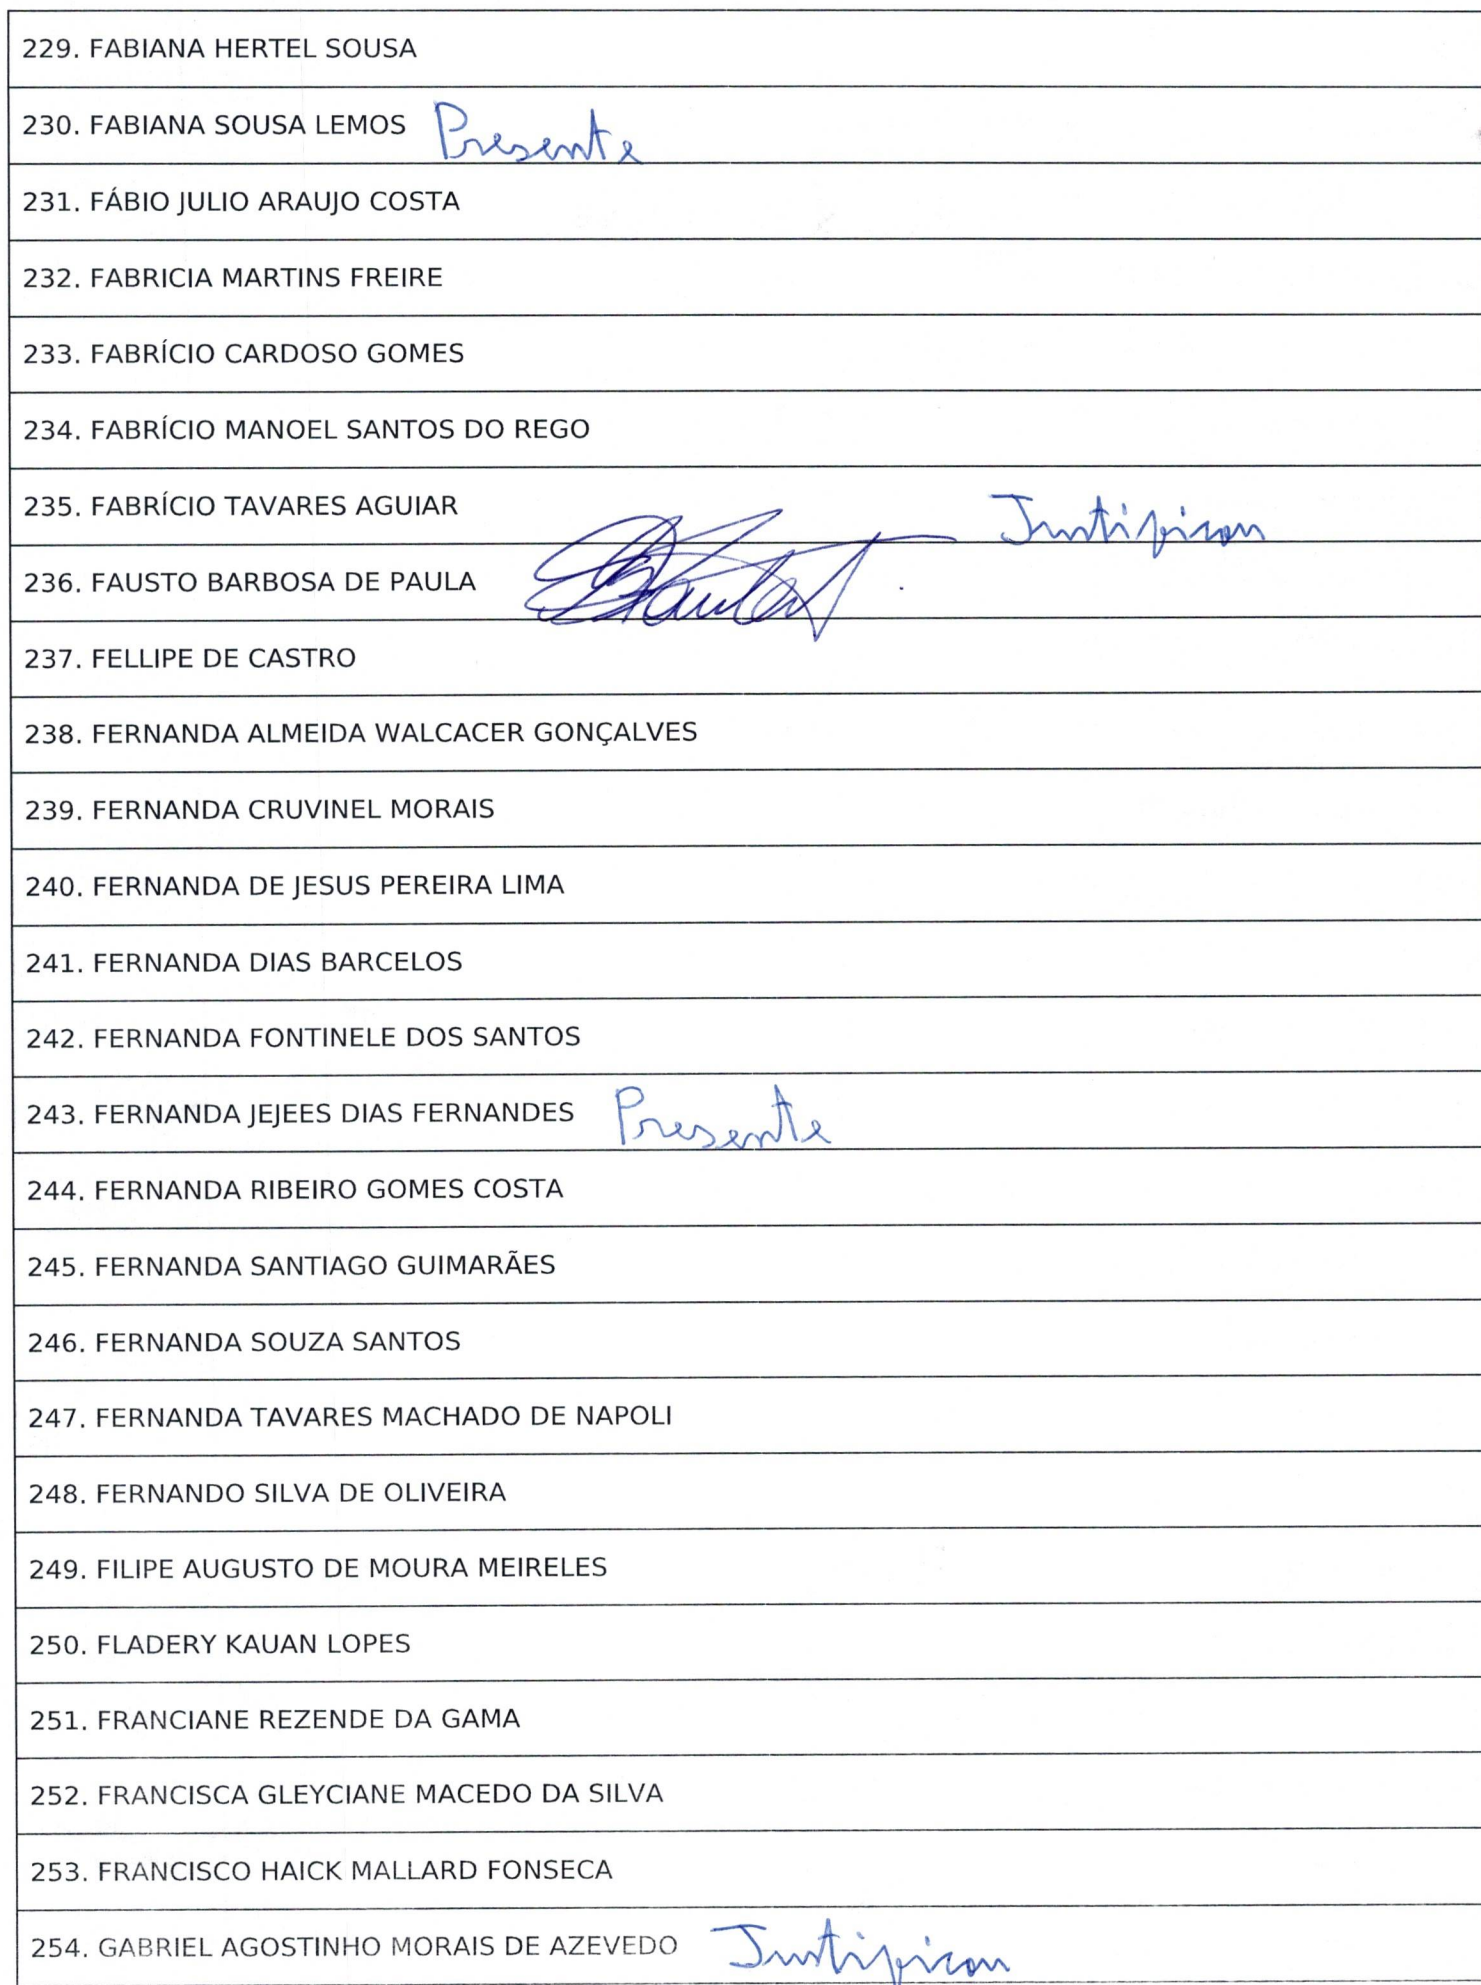 229. FABIANA HERTEL SOUSA
230. FABIANA SOUSA LEMOS Presente
231. FÁBIO JULIO ARAUJO COSTA
232. FABRICIA MARTINS FREIRE
233. FABRÍCIO CARDOSO GOMES
234. FABRÍCIO MANOEL SANTOS DO REGO
235. FABRÍCIO TAVARES AGUIAR Justificou
236. FAUSTO BARBOSA DE PAULA
237. FELLIPE DE CASTRO
238. FERNANDA ALMEIDA WALCACER GONÇALVES
239. FERNANDA CRUVINEL MORAIS
240. FERNANDA DE JESUS PEREIRA LIMA
241. FERNANDA DIAS BARCELOS
242. FERNANDA FONTINELE DOS SANTOS
243. FERNANDA JEJEES DIAS FERNANDES Presente
244. FERNANDA RIBEIRO GOMES COSTA
245. FERNANDA SANTIAGO GUIMARÃES
246. FERNANDA SOUZA SANTOS
247. FERNANDA TAVARES MACHADO DE NAPOLI
248. FERNANDO SILVA DE OLIVEIRA
249. FILIPE AUGUSTO DE MOURA MEIRELES
250. FLADERY KAUAN LOPES
251. FRANCIANE REZENDE DA GAMA
252. FRANCISCA GLEYCIANE MACEDO DA SILVA
253. FRANCISCO HAICK MALLARD FONSECA
254. GABRIEL AGOSTINHO MORAIS DE AZEVEDO Justificou